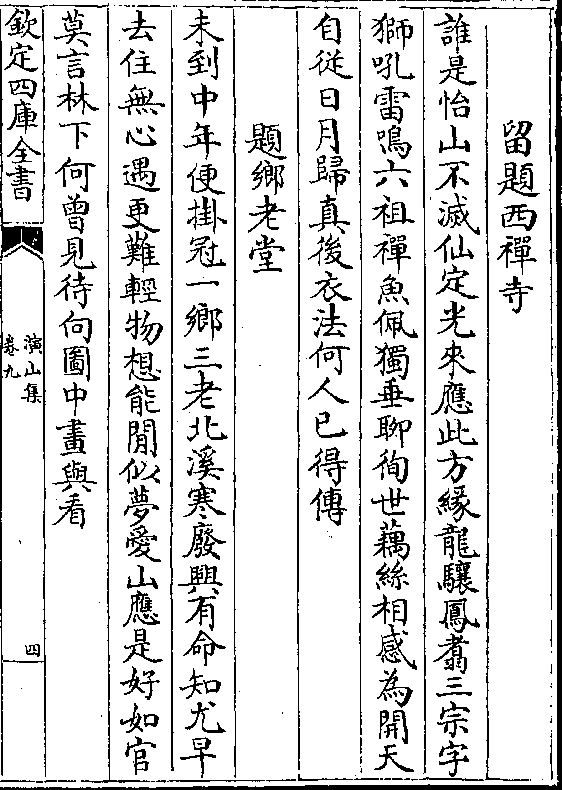 留題西禪寺
誰是怡山不滅仙定光來應此方緣龍驤鳳翥三宗字
獅吼雷鳴六祖禪魚佩獨垂聊徇世藕絲相感為開天
自從日月歸真後衣法何人已得傳
題鄉老堂
未到中年便掛冠一鄉三老北溪寒廢興有命知尤早
去住無心遇更難輕物想能閒似夢愛山應是好如官
莫言林下何曾見待向圖中畫與看
欽定四庫全書
演山集
卷九
四